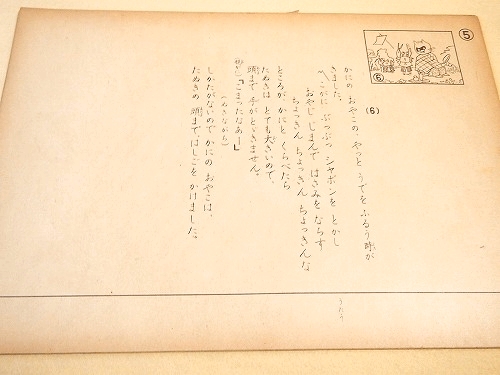 ⑤
⑥
(6)
かにの おやこの、やっと うでをふるう時が
きました。
ぶつぶつ シャボンを とかし
おやじ じまんで はさみを ならす
ちょっきん ちょっきん ちょっきんな
ところが かにと くらべたら
たぬきは とても 大きいので、
頭まで 手が とどきません。
「こまったなあー」
(ぬきながら)
しかたがないので かにの おやこは、
たぬきの 頭まで、はしごを かけました。